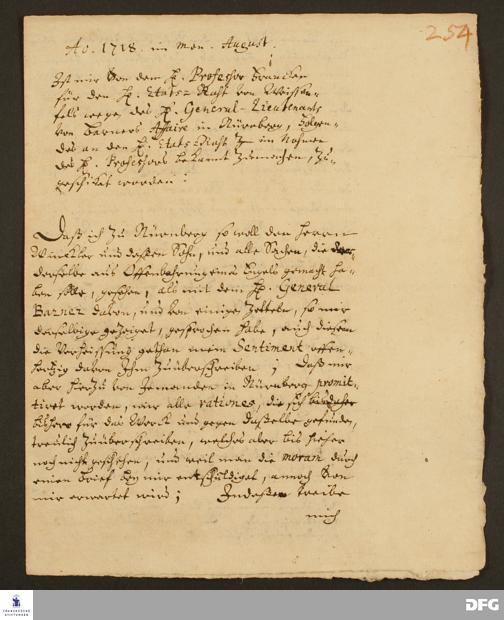 254
Ao. 1718. im Mon. August.
Ist mir Von dem H. Professor Francken
für den H. Etats Raht von Weissen-
fels wegen des H. General-Lieutenants
von Barners Affaire in Nürnberg, Folgen-
des an den H. Etats Raht im Nahmen
des H. Professors bekannt zumachen, zu-
geschikt worden:
Daß ich zu Nürnberg so woll den Herrn
Winckler und deßen Sohn, und alle Sachen, die
derselbe aus Offenbahrung eines Engels gemacht ha-
ben solle, gesehen, als mit dem H. General
Barner davon, und von einigen Zetteln, so mir
derselbige gezeiget, gesprochen habe, auch diesem
die Versicherung gethan mein Sentiment offen-
hertzig davon Ihm zuüberschreiben; Daß mir
aber hierzu von Jemanden in Nürnberg promit-
tiret worden, mir alle rationes, die sich
bißhero für das Werck und gegen daßelbe gefunden,
treulich zuüberschreiben, welches aber bis hieher
noch nicht geschehen, und weil man die moram durch
einen Brief bey mir entschuldiget, annoch Von
mir erwartet wird; Indeßen treibe
mich
FRANCKESCHE
STIFTUNGEN
DFG